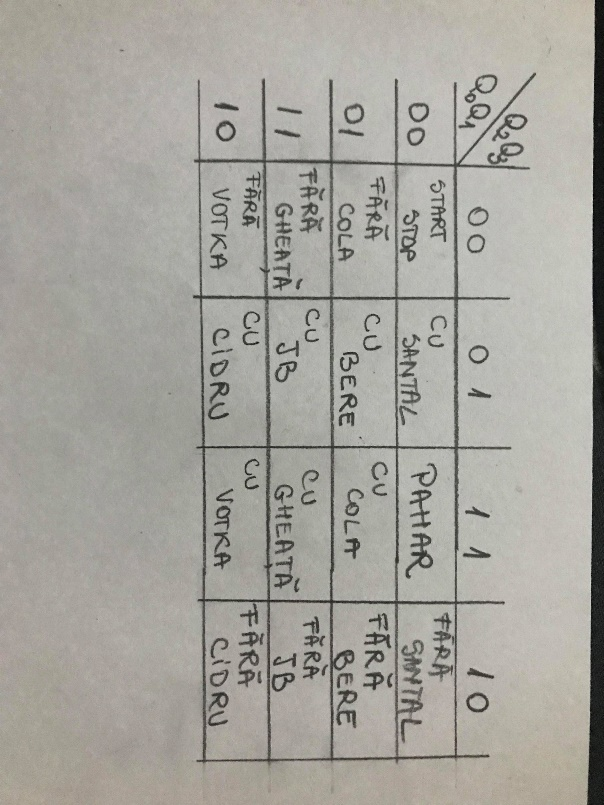 Q₂Q₃
Q₀Q₁
00 01 11 10
00 START STOP CU SANTAL PAHAR FĂRĂ SANTAL
01 FĂRĂ COLA CU BERE CU COLA FĂRĂ BERE
11 FĂRĂ GHEAȚĂ CU JB CU GHEAȚĂ FĂRĂ JB
10 FĂRĂ VOTKA CU CIDRU CU VOTKA FĂRĂ CIDRU